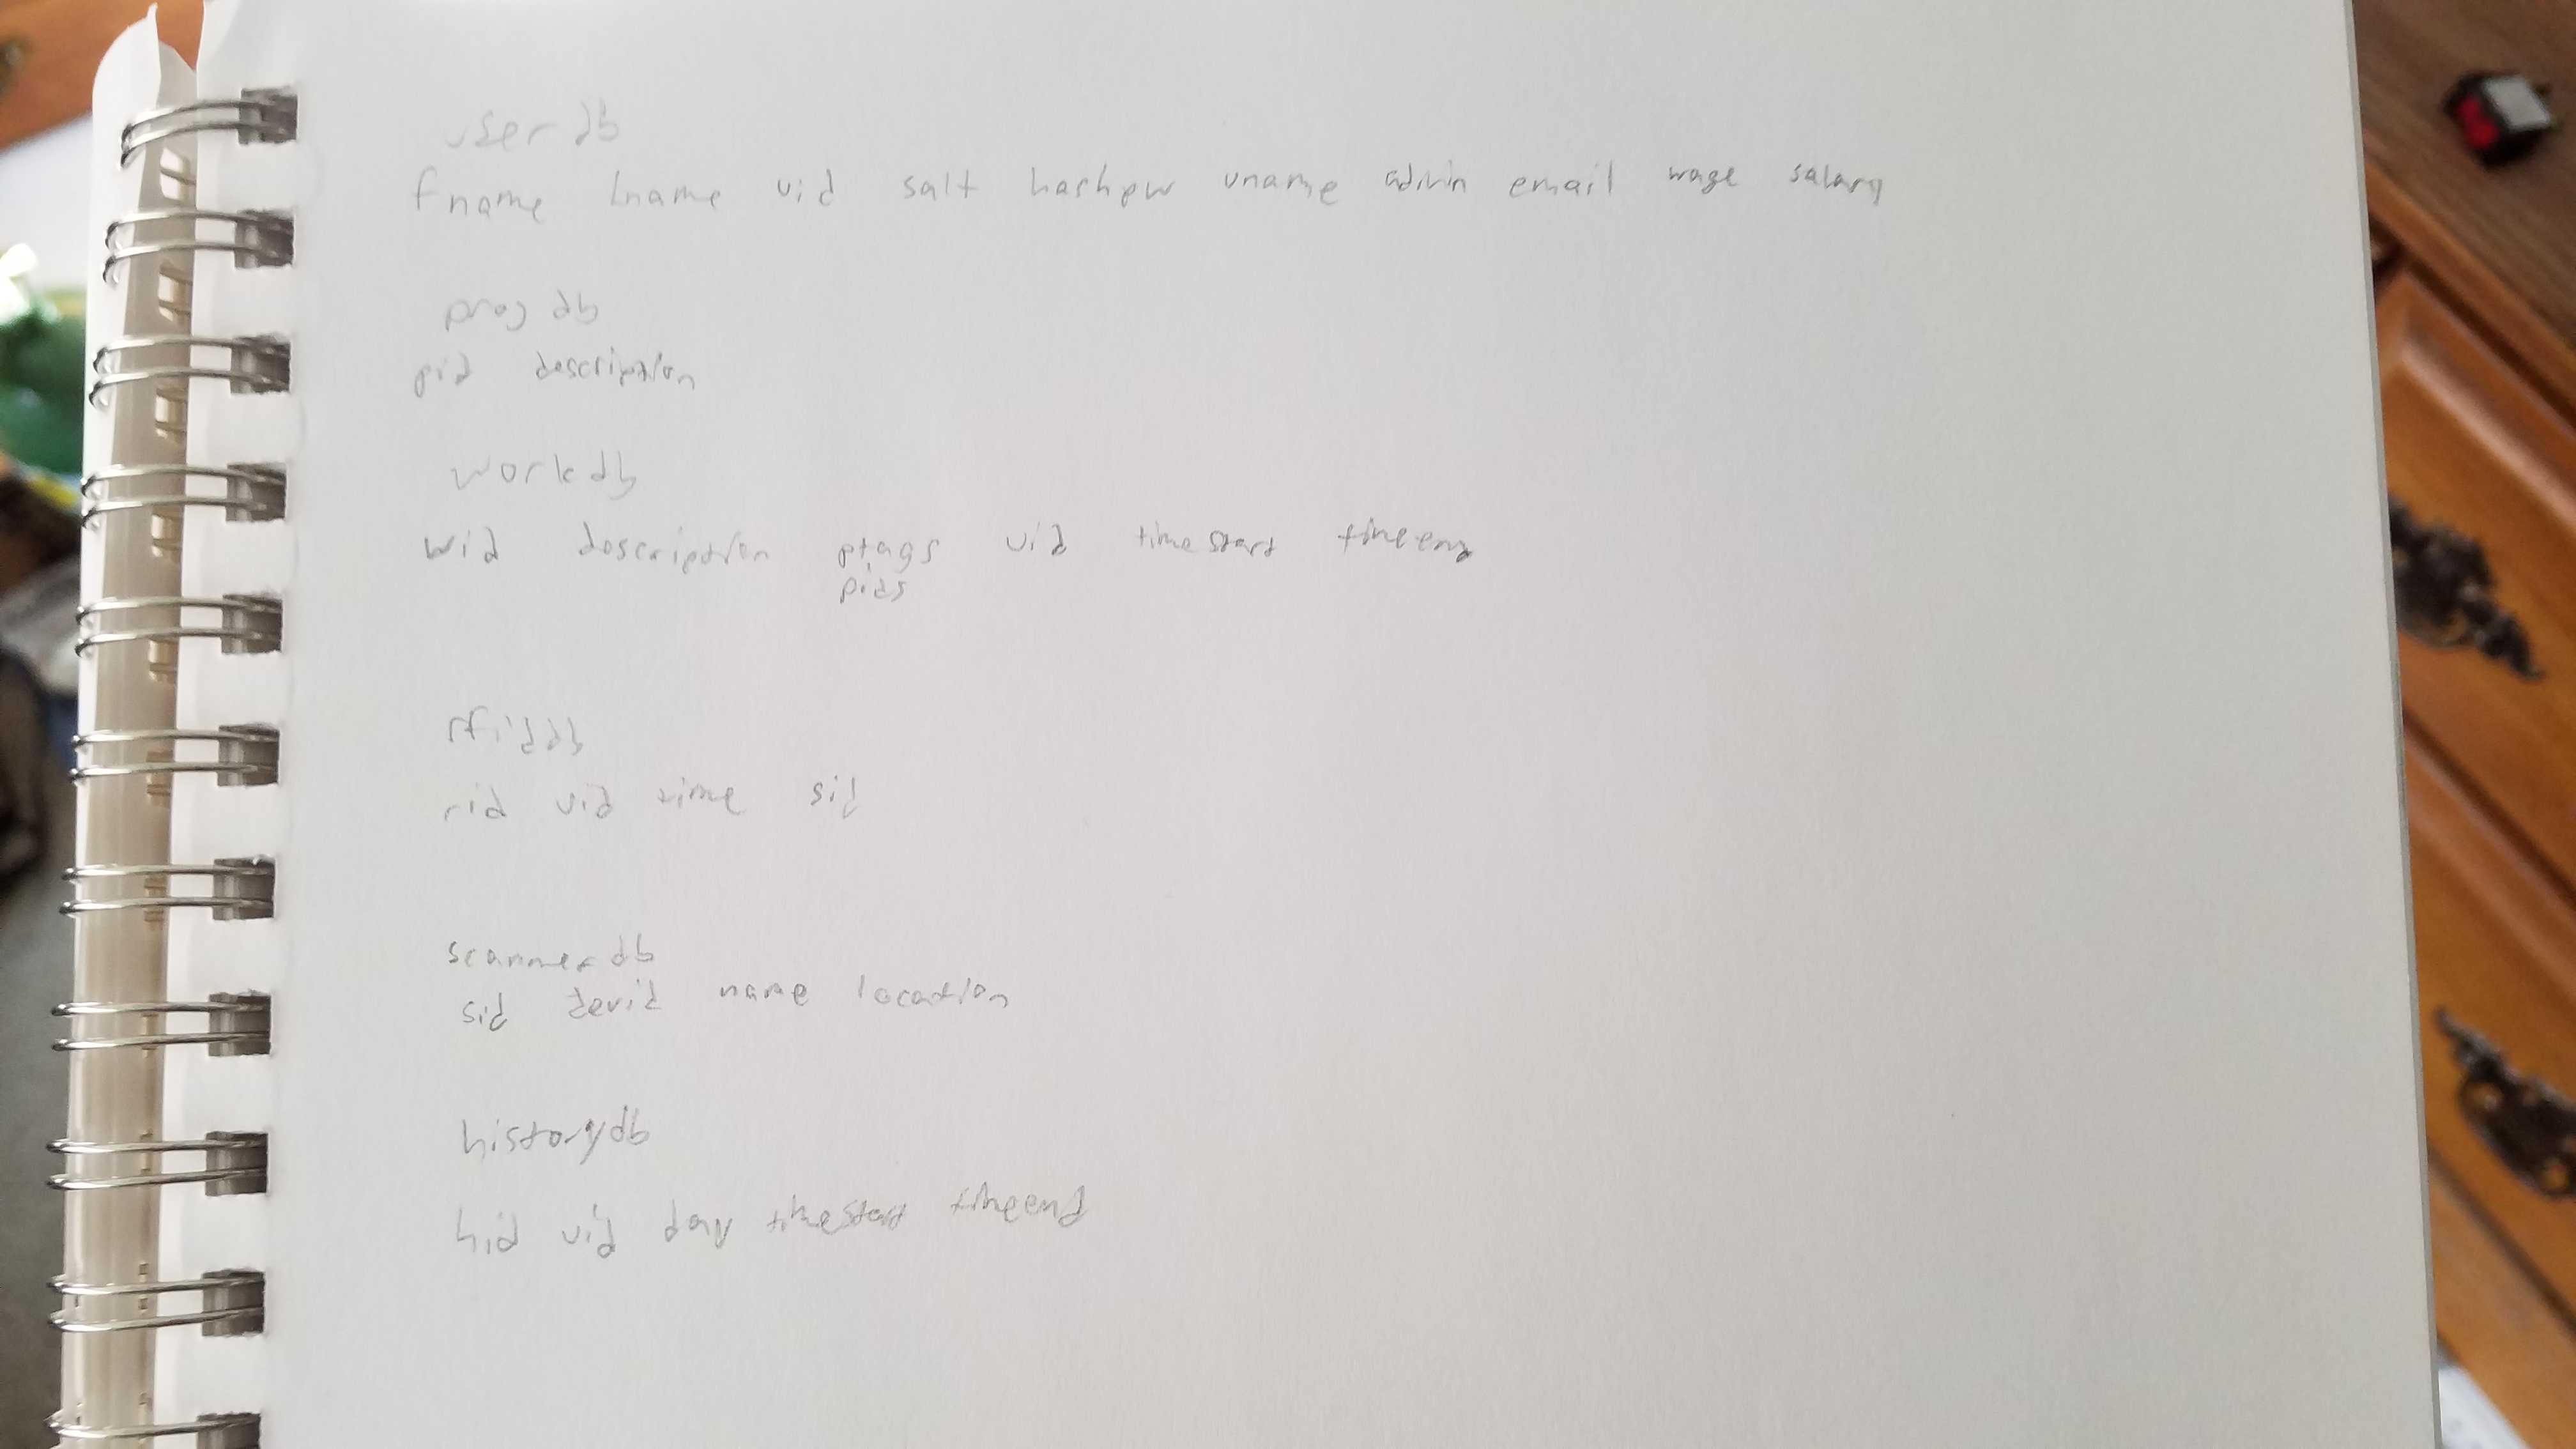 userdb
fname lname uid salt hashpw uname admin email wage salary
projdb
pid description
workdb
wid description ptags uid timestart timeend
pids
rfiddb
rid uid time sid
scannerdb
sid devid name location
historydb
hid uid day timestart timeend